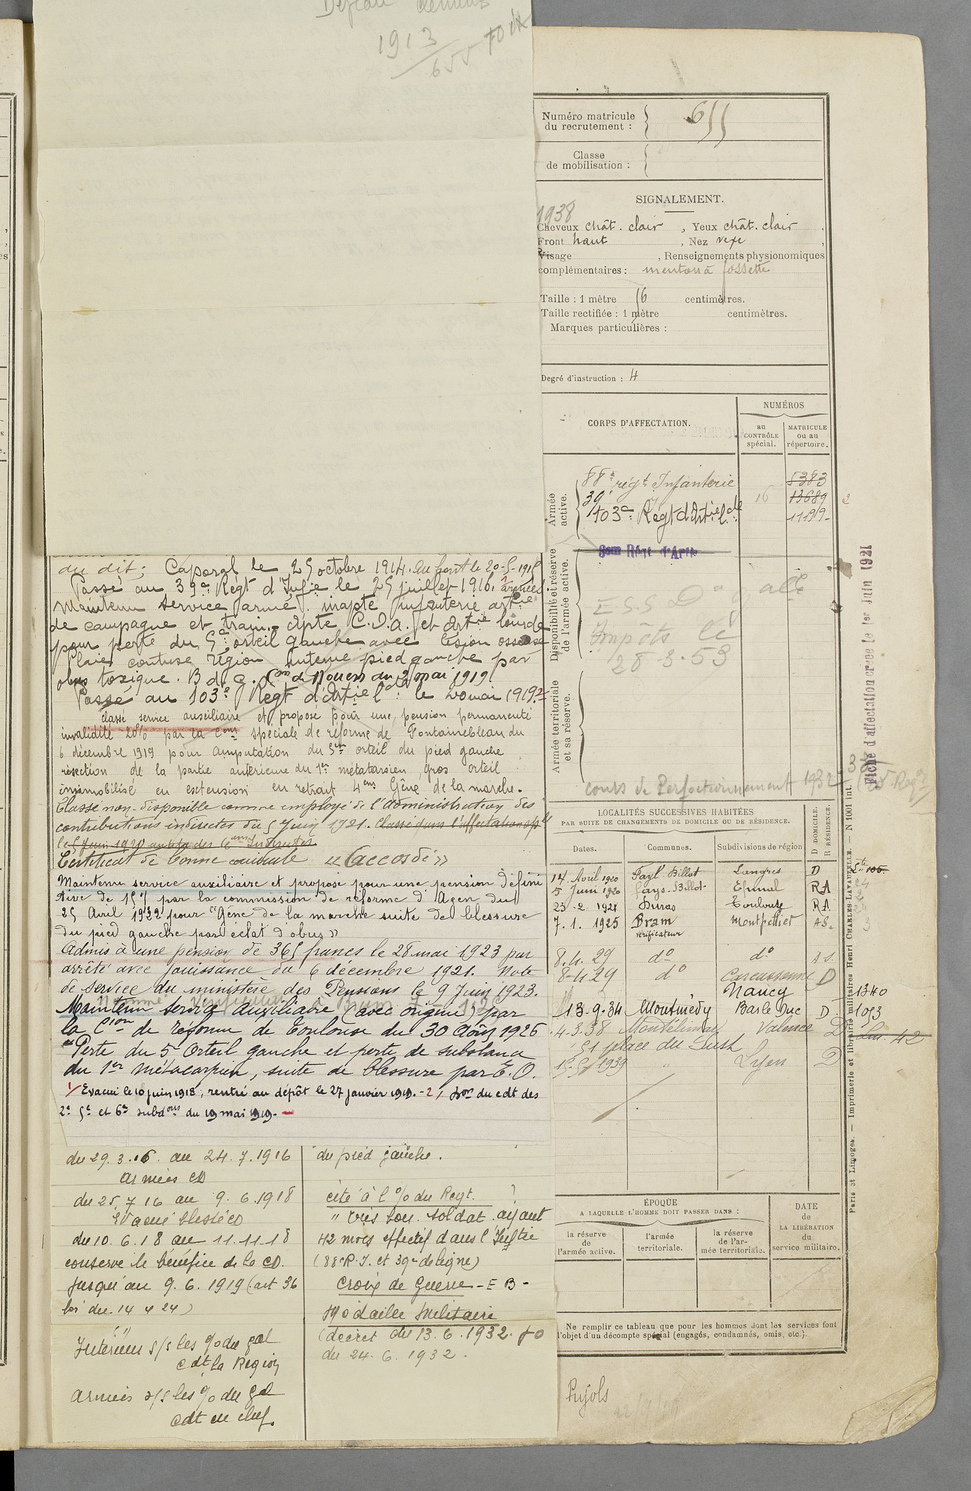 1913
655
Numéro matricule
du recrutement :
655
Classe
de mobilisation :
SIGNALEMENT.
1938
Cheveux chât. clair, Yeux chât. clair
Front haut, Nez vexe,
Visage, Renseignements physionomiques
complémentaires : menton à fossette
Taille : 1 mètre 56 centimètres.
Taille rectifiée : 1 mètre centimètres.
Marques particulières :
Degré d'instruction : 4
CORPS D'AFFECTATION.
NUMÉROS
au
CONTRÔLE
spécial.
MATRICULE
ou au
répertoire.
Armée
active.
88e régt Infanterie
5383
39e
16
13689
103e Régt d'Artie lde
Disponibilité et réserve
de l'armée active.
E.S.S
Impôts le
28-3-53
Armée territoriale
et sa réserve.
cours de Perfectionnement 1932
Fiche d'affectation créée le 1er Juin 1921
du dit: Caporal le 25 octobre 1914. Au front le 20-5-1915
Passé au 39e Régt d'Infie le 25 juillet 1916.
Maintenu service armé. inapte infanterie, artie
de campagne et train. Apte C.O.A. et artie lourde
pour perte du 5e orteil gauche avec lésion osseuse
Plaie contuse région interne pied gauche par
obus toxique. B.d.G. Con de Rouen du 2 mai 1919
Passé au 103e Régt d'Artie lde le 20 mai 1919.2
Classé service auxiliaire et proposé pour une pension permanente
invalidité 20% par la Con spéciale de réforme de Fontainebleau du
6 décembre 1919 pour amputation du 5me orteil du pied gauche
résection de la partie antérieure du 1er métatarsien, gros orteil
immobilisé en extension en retrait 4cms Gêne de la marche.
Classé non-disponible comme employé de l'administration des
contributions indirectes du 5 Juin 1921. Classé dans l'affectation sple
Certificat de bonne conduite « Accordé »
Maintenu service auxiliaire et proposé pour une pension défini
tive de 15% par la commission de réforme d'Agen du
25 Avril 1922 pour "Gêne de la marche suite de blessure
du pied gauche par éclat d'obus"
Admis à une pension de 365 francs le 28 mai 1923 par
arrêté avec jouissance du 6 décembre 1921. Note
de Service du ministère des Pensions le 9 Juin 1923.
Maintenu service auxiliaire (avec origine) par
la Cion de réforme de Toulouse du 30 Août 1926
Perte du 5e Orteil gauche et perte de substance
du 1er métacarpien, suite de blessure par E.O.
1/ Evacué le 10 juin 1918, rentré au dépôt le 27 janvier 1919. - 2/ Don du cdt des
2e 5e et 6e subdons du 19 mai 1919. -
LOCALITÉS SUCCESSIVES HABITÉES
PAR SUITE DE CHANGEMENTS DE DOMICILE OU DE RÉSIDENCE.
Dates.
Communes.
Subdivisions de région
D DOMICILE.
R RÉSIDENCE.
14 Avril 1920 Fayl Billot Langres D
5 Juin 1920 Fays-Billot Epinal RA
23-2-1921 Duras Toulouse RA
7.1.1925 Bram Montpellier AS.
Vérificateur
8.4.29 do do A S.
8-4 29 do Carcassonne D
Nancy 1340
13.9.34 Montmédy Bar le Duc D 1073
4.3.38 Montélimar Valence D
1939 " Lyon D
Paris et Limoges. — Imprimerie et librairie militaires Henri CHARLES-LAVAUZELLE. — N 1001 int.
ÉPOQUE
A LAQUELLE L'HOMME DOIT PASSER DANS :
la réserve
de
l'armée active.
l'armée
territoriale.
la réserve
de l'ar-
mée territoriale.
DATE
de
LA LIBÉRATION
du
service militaire.
Ne remplir ce tableau que pour les hommes dont les services font
l'objet d'un décompte spécial (engagés, condamnés, omis, etc.).
Pujols
du 29.3.16 au 24.7.1916
Armées CD
du 25.7.16 au 9.6.1918
Evacué blessé CD
du 10.6.18 au 11.11.18
conserve le bénéfice de la CD.
jusqu'au 9.6.1919 (art 36
loi du 14 4 24)
Intérieur s/s les %du gal
cdt la Région
Armées s/s les %du gal
cdt en chef.
du pied gauche.
cité à l'% du Regt.
"très bon soldat ayant
42 mois effectif dans l'Inftie
(88e R.I. et 39e de ligne)
Croix de Guerre - E B -
Médaille Militaire
(décret du 13.6.1932. JO
du 24.6.1932.